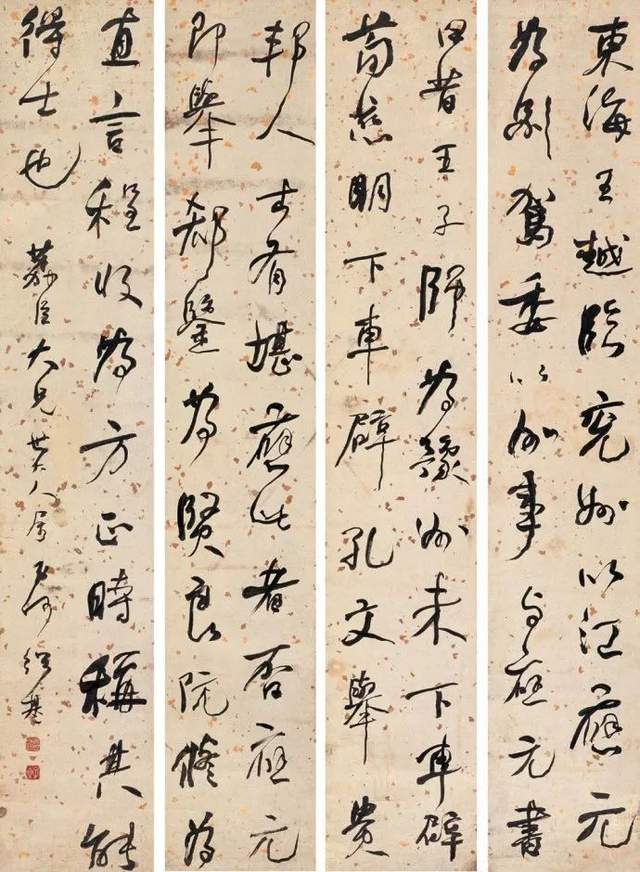 東海王越臨兗州以江應元
為別駕委以州事與應元書
曰昔王子師為豫州未下車辟
荀慈明下車辟孔文舉貴
邦人士有堪應此者否應元
即舉郗鑒為賢良阮脩為
直言程收為方正時稱其能
得士也 荔臣大兄世大人屬 弟何紹基